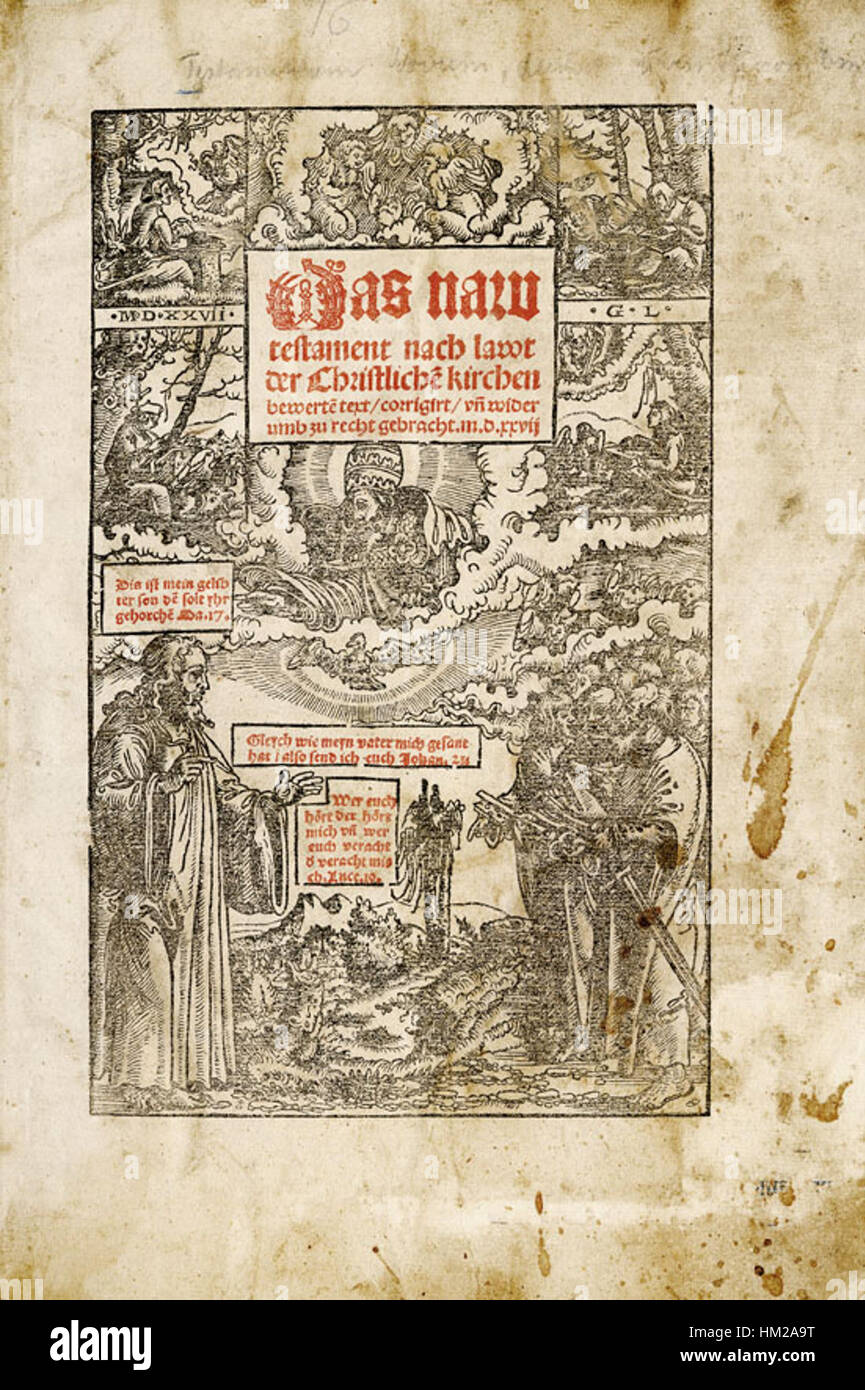 16
Testamentum Novum,
Das naw
·M·D·XXVII·
·G·L·
testament nach lawt
der Christlichē kirchen
bewertē text/corrigirt/vñ wider
umb zu recht gebracht.m.d.xxvij
Dis ist mein gelib
ter son dē solt yhr
gehorchē Ma.17.
Gleych wie meyn vater mich gesant
hat/also send ich euch Johan.
Wer euch
hört der hört
mich vñ wer
euch veracht
d veracht mi
ch. Luce.10.
alamy
Image ID: HM2A9T
www.alamy.com